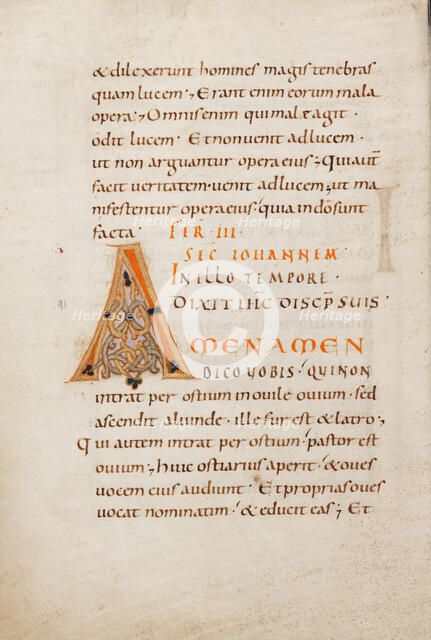 & dilexerunt homines magis tenebras
quam lucem; Erant enim eorum mala
opera; Omnis enim qui male agit
odit lucem. Et non venit ad lucem.
ut non arguantur opera eius; Qui aut̄
facit veritatem. venit ad lucem; ut ma
nifestentur opera eius. quia in dō sunt
facta FER· III·
SEC IOHANNEM
IN ILLO TEMPORE·
DIXIT IHC DISCP̄ SUIS·
AMEN AMEN
DICO VOBIS· QUI NON
intrat per ostium in ovile ovium. sed
ascendit aliunde. ille fur est & latro;
Qui autem intrat per ostium. pastor est
ovium; huic ostiarius aperit. & oves
vocem eius audiunt. Et proprias oves
vocat nominatim. & educit eas; Et
91
heritage-images.com